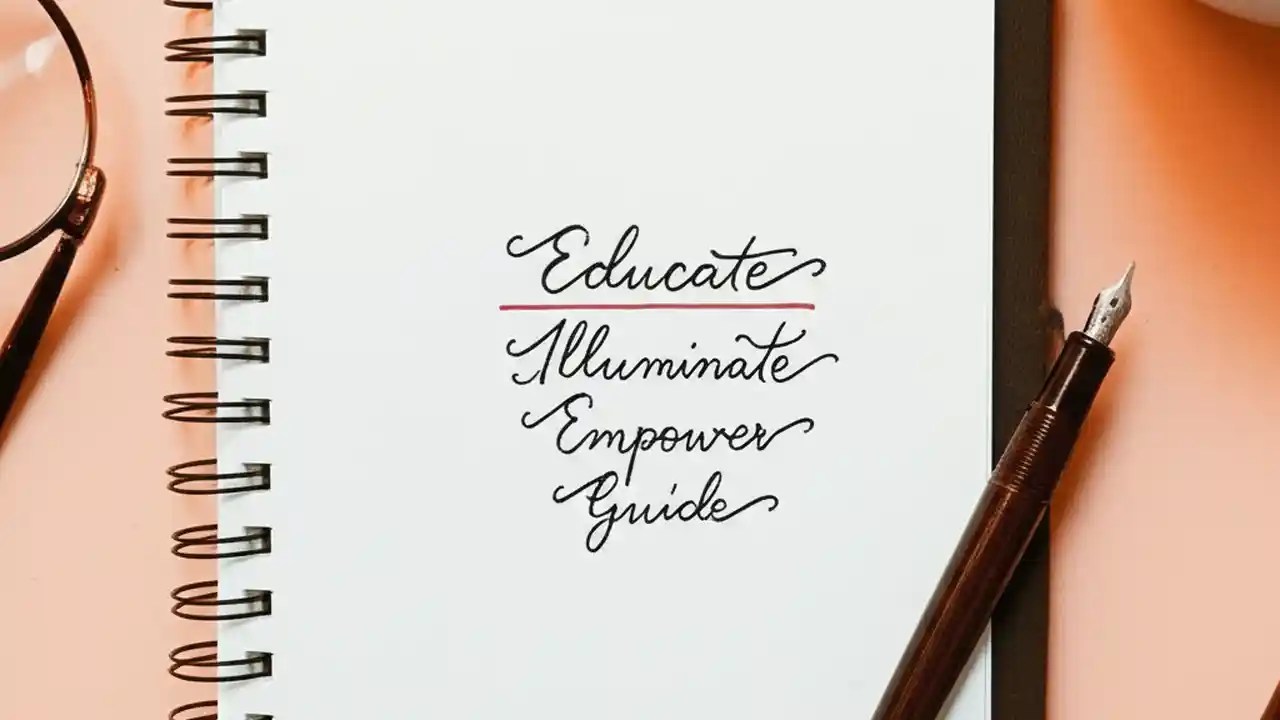 Educate
Illuminate
Empower
Guide